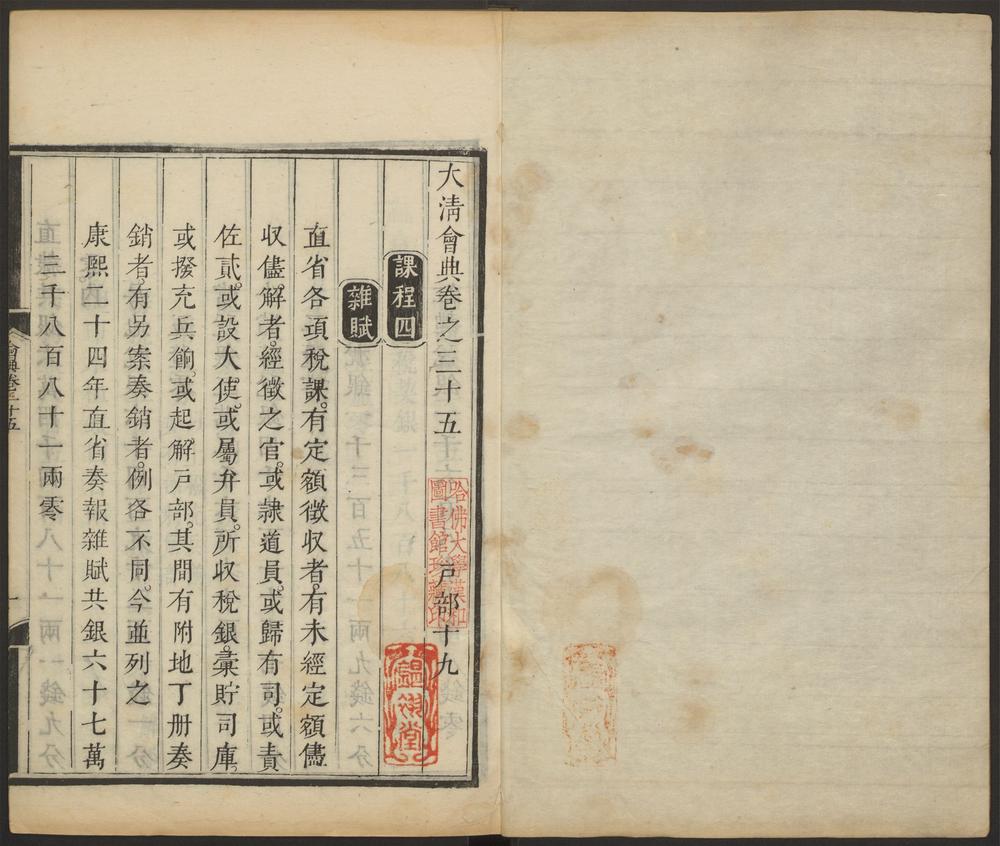 大清會典卷之三十五 戶部十九
課程四
雜賦
直省各項稅課。有定額徵收者。有未經定額儘
收儘解者。經徵之官。或隸道員。或歸有司。或責
佐貳。或設大使。或屬弁員。所收稅銀。彙貯司庫。
或撥充兵餉。或起解戶部。其間有附地丁册奏
銷者。有另案奏銷者。例各不同。今並列之
康熙二十四年直省奏報雜賦共銀六十七萬
三千八百八十一兩零
會典卷三十五
一
哈佛大學漢和
圖書館珍藏印